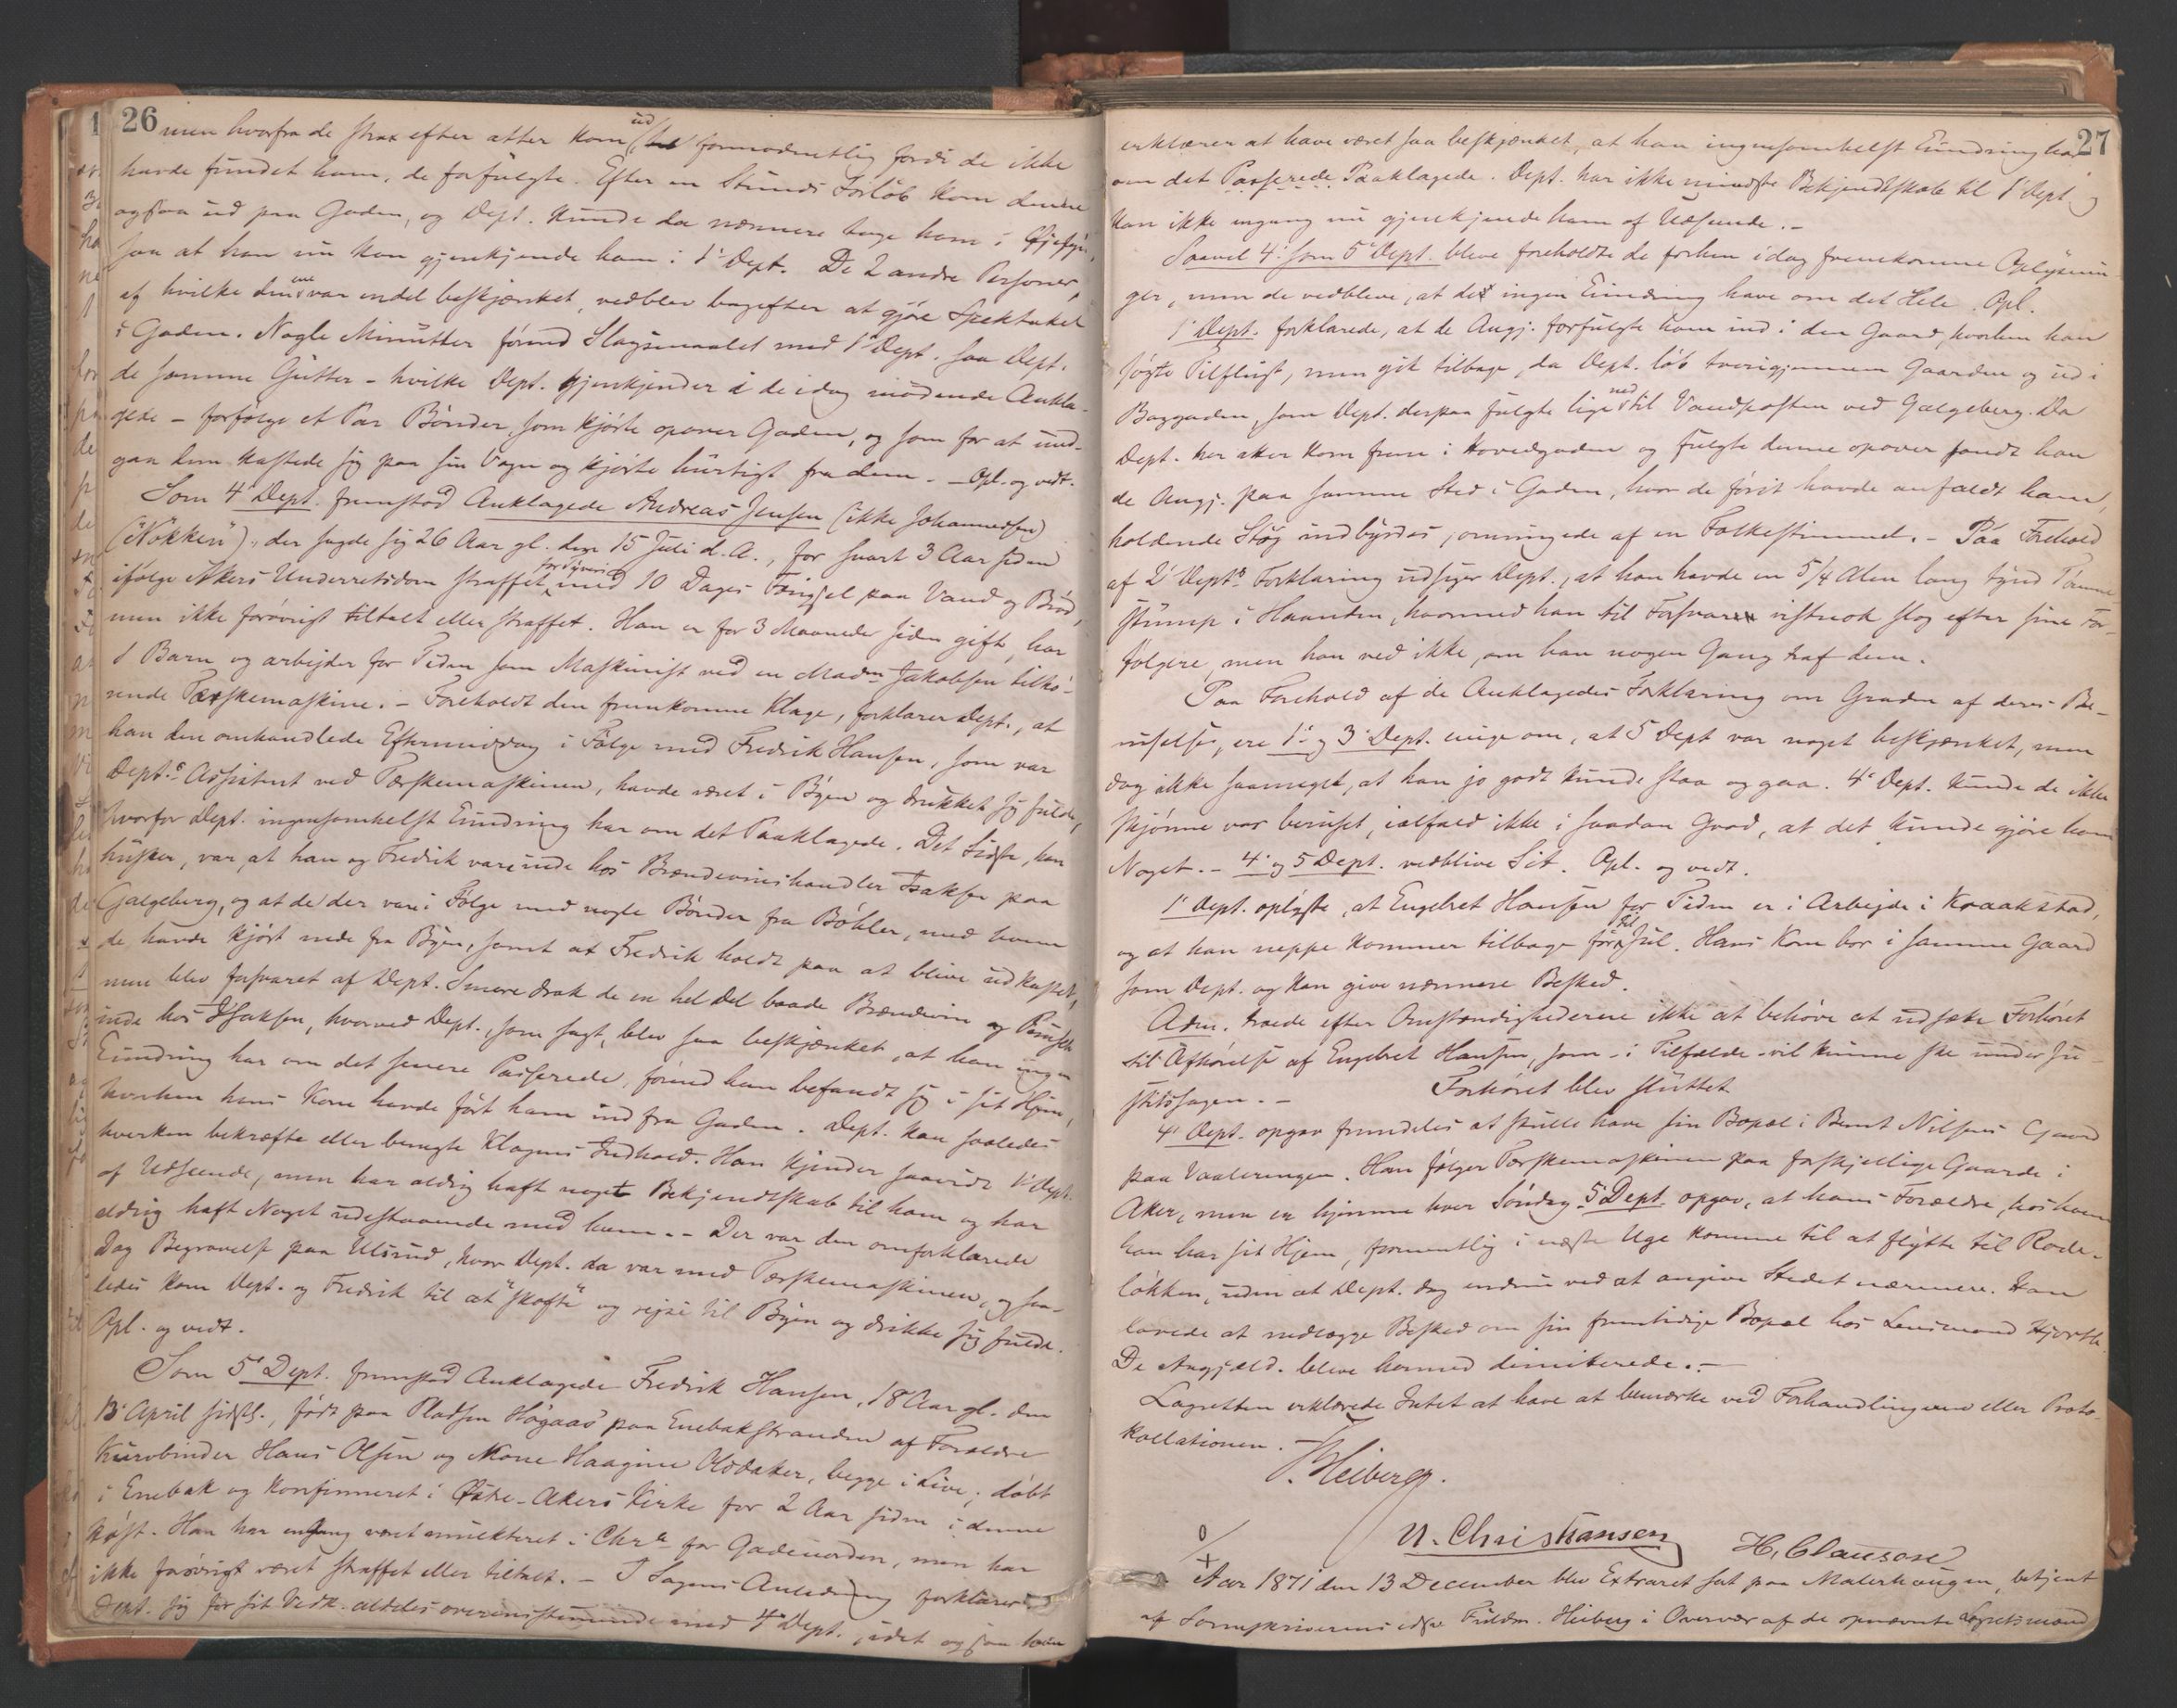 26
men hvorfra de strax efter atter kom ud, formodentlig fordi de ikke
havde fundet ham, de forfulgte. Efter en Stunds Forløb kom denne
ogsaa ud paa Gaden, og Dept. kunde da nærmere tage ham i Øjesyn,
saa at han nu kan gjenkjende ham i 1' Dept. De 2 andre Personer,
af hvilke den ene var endel beskjænket, vedblev bagefter at gjøre Spektakel
i Gaden. Nogle Minutter førend Slagsmaalet med 1' Dept. saa Dept.
de samme Gutter - hvilke Dept. gjenkjender i de idag mødende Ankla-
gede - forfølge et Par Bønder, som kjørte opover Gaden, og som for at und-
gaa dem kastede sig paa sin Vogn og kjørte hurtigt fra dem. - Opl. og vedt.
Som 4' Dept. fremstod Anklagede Andreas Jensen (ikke Johannessen)
("Nøkken")., der sagde sig 26 Aar gl. den 15 Juli d.A., for snart 3 Aar siden
ifølge Akers Underretsdom straffet for Tyveri med 10 Dages Fængsel paa Vand og Brød,
men ikke forøvrigt tiltalt eller straffet. Han er for 3 Maaneder siden gift, har
1 Barn og arbejder for Tiden som Maskinist ved en Madm Jakobsen tilhø-
rende Tærskemaskine. - Foreholdt den fremkomne Klage, forklarer Dept., at
han den omhandlede Eftermiddag i Følge med Fredrik Hansen, som var
Dept.s Assistent ved Tærskemaskinen, havde været i Byen og drukket sig fulde,
hvorfor Dept. ingensomhelst Erindring har om det Paaklagede. Det Sidste, han
husker, var, at han og Fredrik vare inde hos Brændevinshandler Isaksen paa
Galgeberg, og at de der vare i Følge med nogle Bønder fra Bøhler, med hvem
de havde kjørt nede fra Byen, samt at Fredrik holdt paa at blive udkastet,
men blev forsvaret af Dept. Senere drak de en hel Del baade Brændevin og Punsch
inde hos Isaksen, hvorved Dept., som sagt, blev saa beskjænket, at han ingen
Erindring har om det senere Passerede, førend han befandt sig i sit Hjem,
hvorhen hans Kone havde ført ham ind fra Gaden. Dept. kan saaledes
hverken bekræfte eller benegte Klagens Indhold. Han kjender saavidt 1' Dept.
af Udseende, men har aldrig haft noget Bekjendtskab til ham og har
aldrig haft Noget udestaaende med ham. - Der var den omforklarede
Dag Begravelse paa Ulsrud, hvor Dept. da var med Tærskemaskinen, og saa-
ledes kom Dept. og Fredrik til at "skofte" og rejse til Byen og drikke sig fulde.
Opl. og vedt.
Som 5' Dept. fremstod Anklagede Fredrik Hansen, 18 Aar gl. den
13' April sidstl., født paa Pladsen Høgaas paa Enebakstranden af Forældre
Kurvbinder Hans Olsen og Kone Haagine Oldaker, begge i Live, døbt
i Enebak og konfirmeret i Østre-Akers Kirke for 2 Aar siden i denne
Høst. Han har engang været mulkteret i Chra for Gadeuorden, men har
ikke forøvrigt været straffet eller tiltalt. - I Sagens Anledning forklarer
Dept. sig for sit Vedk. aldeles overensstemmende med 4' Dept., idet ogsaa han
27
erklærer at have været saa beskjænket, at han ingensomhelst Erindring har
om det Passerede Paaklagede. Dept. har ikke mindste Bekjendtskab til 1' Dept. og
kan ikke engang nu gjenkjende ham af Udseende. -
Saavel 4' som 5' Dept. bleve foreholdte de forhen idag fremkomne Oplysnin-
ger, men de vedbleve, at de ingen Erindring have om det Hele. Opl.
1' Dept. forklarede, at de Angj. forfulgte ham ind i den Gaard, hvorhen han
søgte Tilflugt, men gik tilbage, da Dept. løb tversigjennem Gaarden og ud i
Baggaden, som Dept. derpaa fulgte lige ned til Vandposten ved Galgeberg. Da
Dept. her atter kom frem i Hovedgaden og fulgte denne opover fandt han
de Angj. paa samme Sted i Gaden, hvor de først havde anfaldt ham,
holdende Støj indbyrdes, omringede af en Folkestimmel. - Paa Forehold
af 2' Depts Forklaring udsiger Dept., at han havde en 5/4 Alen lang tynd Tømme
stump i Haanden, hvormed han til Forsvar vistnok slog efter sine For-
følgere, men han ved ikke, om han nogen Gang traf dem.
Paa Forehold af de Anklagedes Forklaring om Graden af deres Be-
ruselse, ere 1' og 3' Dept. enige om, at 5 Dept var noget beskjænket, men
dog ikke saameget, at han jo godt kunde staa og gaa. 4' Dept. kunde de ikke
skjønne var beruset, ialfald ikke i saadan Grad, at det kunde gjøre ham
Noget. - 4' og 5 Dept. vedblive Sit. Opl. og vedt.
1' Dept. oplyste, at Engebret Hansen for Tiden er i Arbejde i Kraakstad,
og at han neppe kommer tilbage før til Jul. Hans Kone bor i samme Gaard
som Dept. og kan give nærmere Besked.
Adm. troede efter Omstændighederne ikke at behøve at udsætte Forhøret
til Afhørelse af Engebret Hansen, som - i Tilfælde - vil kunne ske under Ju-
stitssagen. - Forhøret blev sluttet
4' Dept. opgav fremdeles at skulle have sin Bopæl i Bernt Nilsens Gaard
paa Vaalerengen. Han følger Tærskemaskinen paa forskjellige Gaarde i
Aker, men er hjemme hver Søndag. 5' Dept. opgav, at hans Forældre, hos hvem
han har sit Hjem, formentlig i næste Uge komme til at flytte til Rode-
løkken, uden at Dept. dog endnu ved at angive Stedet nærmere. Han
lovede at nedlægge Besked om sin fremtidige Bopæl hos Lensmand Hjorth.
De Angjæld. bleve hermed dimitterede. -
Lagretten erklærede Intet at have at bemærke ved Forhandlingerne eller Proto-
kollationen.
Heiberg.
N. Christiansen H. Clausen
Aar 1871 den 13 December blev Extraret sat paa Malerhaugen, betjent
af Sorenskriverens edsv. Fuldm. Heiberg i Overvær af de opnævnte Lagrettesmænd